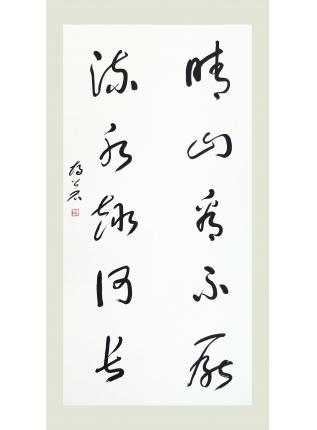 晴山看不厭
流水趣何長